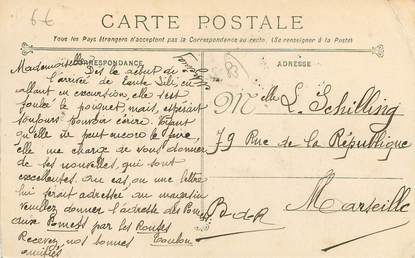 6€
CARTE POSTALE
Tous les Pays étrangers n'acceptent pas la Correspondance au recto. (Se renseigner à la Poste)
CORRESPONDANCE
ADRESSE
Mademoiselle
Dès le début de
l'arrivée de tante Lili en
allant en excursion, elle s'est
foulé le poignet, mais, espérant
toujours pouvoir écrire. Voyant
qu'elle ne peut encore le faire,
elle me charge de vous donner
de ses nouvelles, qui sont
excellentes. Au cas, ou une lettre
lui serait adressée au magasin
veuillez donner l'adresse des
aux par les Routes
Recevez nos bonnes Toulon
amitiés
Melle L. Schilling
79 Rue de la République
Marseille
B d R